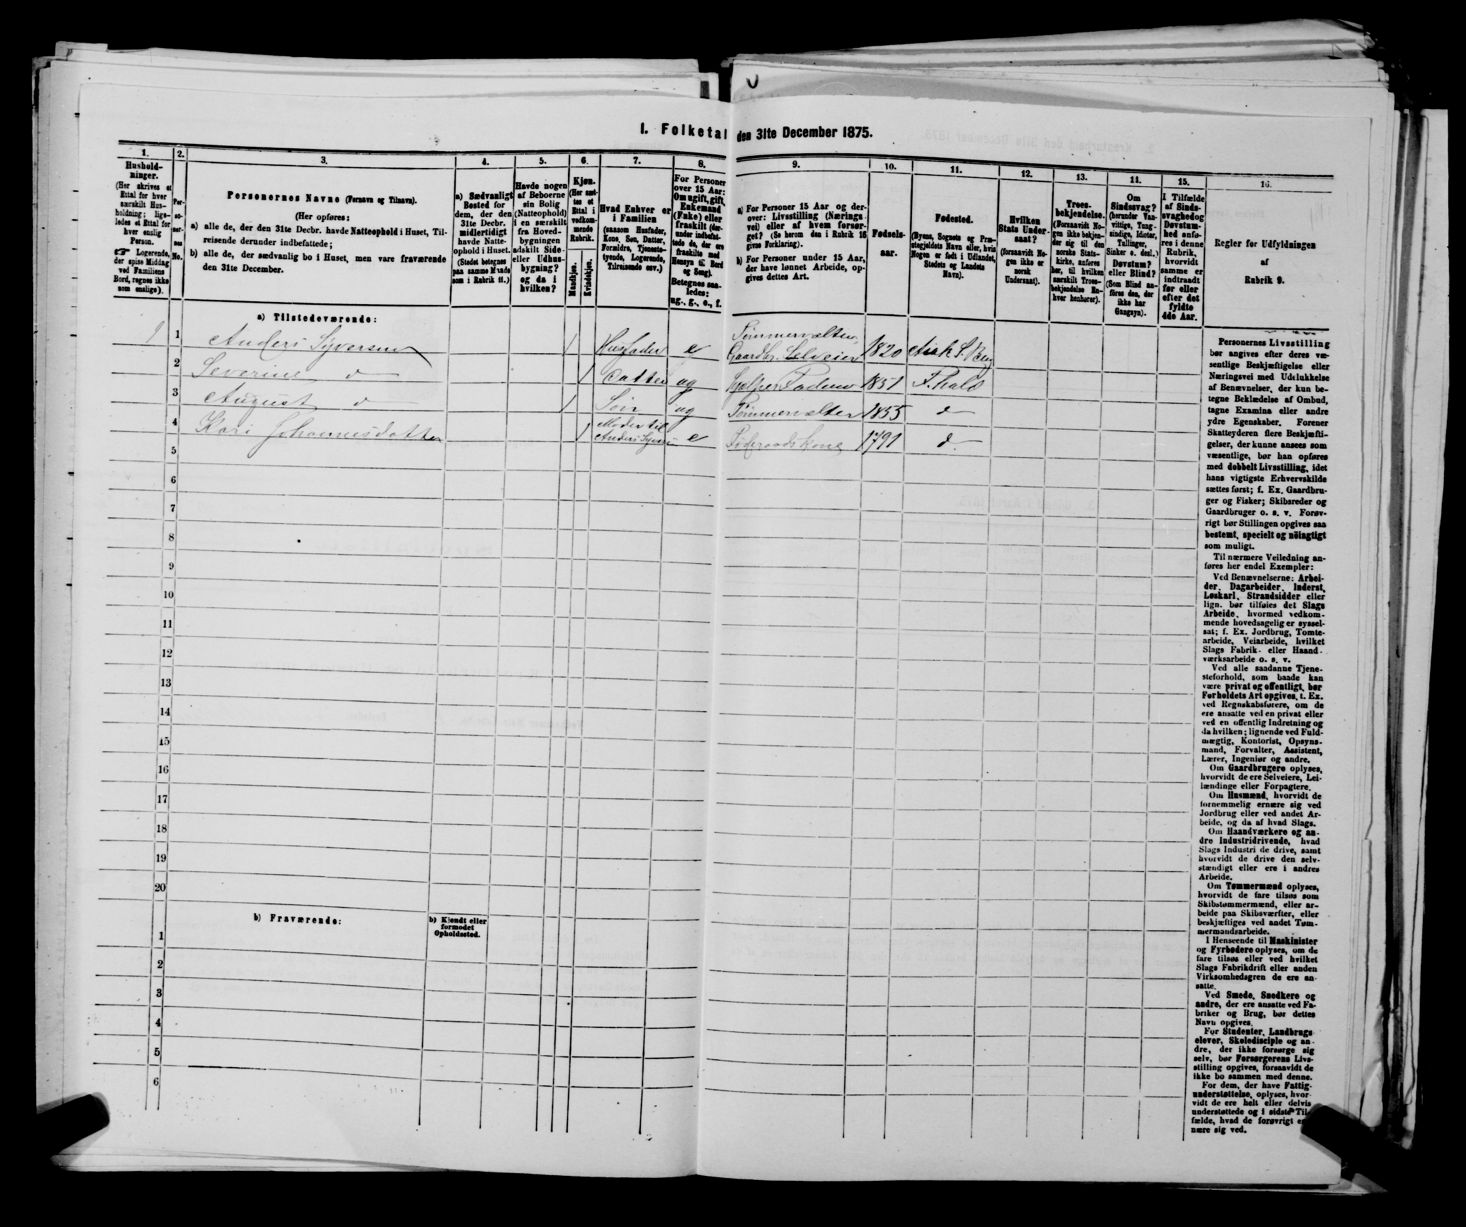 I. Folketal den 31te December 1875.
1.
Hushold-
ninger.
(Her skrives et
Ettal for hver
særskilt Hus-
holdning; lige-
ledes et Ettal for
hver enslig
Person.
☞ Logerende,
der spise Middag
ved Familiens
Bord, regnes ikke
som enslige).
2.
Per-
so-
ner-
nes
No.
3.
Personernes Navne (Fornavn og Tilnavn).
(Her opføres:
a) alle de, der den 31te Decbr. havde Natteophold i Huset, Til-
reisende derunder indbefattede;
b) alle de, der sædvanlig bo i Huset, men vare fraværende
den 31te December.
4.
a) Sædvanligt
Bosted for
dem, der den
31te Decbr.
midlertidigt
havde Natte-
ophold i Huset.
(Stedet betegnes
paa samme Maade
som i Rubrik 11.)
5.
Havde nogen
af Beboerne
sin Bolig
(Natteophold)
i en særskilt
fra Hoved-
bygningen
adskilt Side-
eller Udhus-
bygning?
og da i
hvilken?
6.
Kjøn.
(Her sæt-
tes et
Ettal i
vedkom-
mende
Rubrik.
Mandkjøn.
Kvindekjøn.
7.
Hvad Enhver er
i Familien
(saasom Husfader,
Kone, Søn, Datter,
Forældre, Tjeneste-
tyende, Logerende,
Tilreisende osv.)
8.
For Personer
over 15 Aar:
Om ugift, gift,
Enkemand
(Enke) eller
fraskilt
Betegnes saa-
ledes:
ug., g., e., f.
9.
a) For Personer 15 Aar og der-
over: Livsstilling (Nærings-
vei) eller af hvem forsør-
get? (Se herom den i Rubrik 16
givne Forklaring).
b) For Personer under 15 Aar,
der have lønnet Arbeide, op-
gives dettes Art.
10.
Fødsels-
aar.
11.
Fødested.
(Byens, Sognets og Præ-
stegjeldets Navn eller, hvis
Nogen er født i Udlandet,
Stedets og Landets
Navn).
12.
Hvilken
Stats Under-
saat?
(forsaavidt No-
gen ikke er
norsk
Undersaat).
13.
Troes-
bekjendelse.
(Forsaavidt No-
gen ikke bekjen-
der sig til den
norske Stats-
kirke, anføres
her, til hvilken
særskilt Troes-
bekjendelse En-
hver henhører).
14.
Om
Sindssvag?
(herunder Van-
vittige, Tung-
sindige, Idioter,
Tullinger,
Sinker o. desl.)
Døvstum?
eller Blind?
(Som Blind an-
føres den, der
ikke har
Gangsyn).
15.
I Tilfælde
af Sinds-
svaghed og
Døvstum-
hed anfø-
res i denne
Rubrik,
hvorvidt
samme er
indtraadt
før eller
efter det
fyldte
4de Aar.
16.
Regler for Udfyldningen
af
Rubrik 9.
a) Tilstedeværende:
1 1 Anders Syversen 1 Husfader e Tømmervælter, Gaardbr. Selveier 1820
2 Severine d 1 Datter ug 1851 F. hald
3 August d 1 Søn ug Tømmervælter 1855 d
4 Kari Johannesdatter 1 Moder til Anders Syvers. e Føderaadskone 1791 d
5
6
7
8
9
10
11
12
13
14
15
16
17
18
19
20
b) Fraværende:
b) Kjendt eller
formodet
Opholdssted.
1
2
3
4
5
6
Personernes Livsstilling
bør angives efter deres væ-
sentlige Beskjæftigelse eller
Næringsvei med Udelukkelse
af Benævnelser, der kun be-
tegne Bekledelse af Ombud,
tagne Examina eller andre
ydre Egenskaber. Forener
Skatteyderen flere Beskjæfti-
gelser, der kunne ansees som
væsentlige, bør han opføres
med dobbelt Livsstilling, idet
hans vigtigste Erhvervskilde
sættes først; f. Ex. Gaardbru-
ger og Fisker; Skibsreder og
Gaardbruger o. s. v. Forøv-
rigt bør Stillingen opgives saa
bestemt, specielt og nöiagtigt
som muligt.
Til nærmere Veiledning an-
føres her endel Exempler:
Ved Benævnelserne: Arbei-
der, Dagarbeider, Inderst,
Løskarl, Strandsidder eller
lign. bør tilføies det Slags
Arbeide, hvormed vedkom-
mende hovedsagelig er syssel-
sat; f. Ex. Jordbrug, Tomte-
arbeide, Veiarbeide, hvilket
Slags Fabrik- eller Haand-
værksarbeide o. s. v.
Ved alle saadanne Tjene-
steforhold, som baade kan
være privat og offentligt, bør
Forholdets Art opgives, t. Ex.
ved Regnskabsførere, om de
ere ansatte ved en privat eller
ved en offentlig Indretning og
da hvilken; lignende ved Fuld-
mægtig, Kontorist, Opsyns-
mand, Forvalter, Assistent,
Lærer, Ingeniør og andre.
Om Gaardbrugere oplyses,
hvorvidt de ere Selveiere, Lei-
lændinge eller Forpagtere.
Om Husmænd, hvorvidt de
fornemmelig ernære sig ved
Jordbrug eller ved andet Ar-
beide, og da af hvad Slags.
Om Haandværkere og an-
dre Industridrivende, hvad
Slags Industri de drive, samt
hvorvidt de drive den selv-
stændigt eller ere i andres
Arbeide.
Om Tømmermænd oplyses,
hvorvidt de fare tilsøs som
Skibstømmermænd, eller ar-
beide paa Skibsværfter, eller
beskjæftiges ved andet Tøm-
mermandsarbeide.
I Henseende til Maskinister
og Fyrbødere oplyses, om de
fare tilsøs eller ved hvilket
Slags Fabrikdrift eller anden
Virksomhedsgren de ere an-
satte.
Ved Smede, Snedkere og
andre, der ere ansatte ved Fa-
briker og Brug, bør dettes
Navn opgives.
For Studenter, Landbrugs-
elever, Skoledisciple og an-
dre, der ikke forsørge sig
selv, bør Forsørgerens Livs-
stilling opgives, forsaavidt de
ikke bo sammen med denne.
For dem, der have Fattig-
understøttelse, oplyses, hvor-
vidt de ere helt eller delvis
understøttede og i sidste Til-
fælde, hvad de forøvrigt er-
nære sig ved.